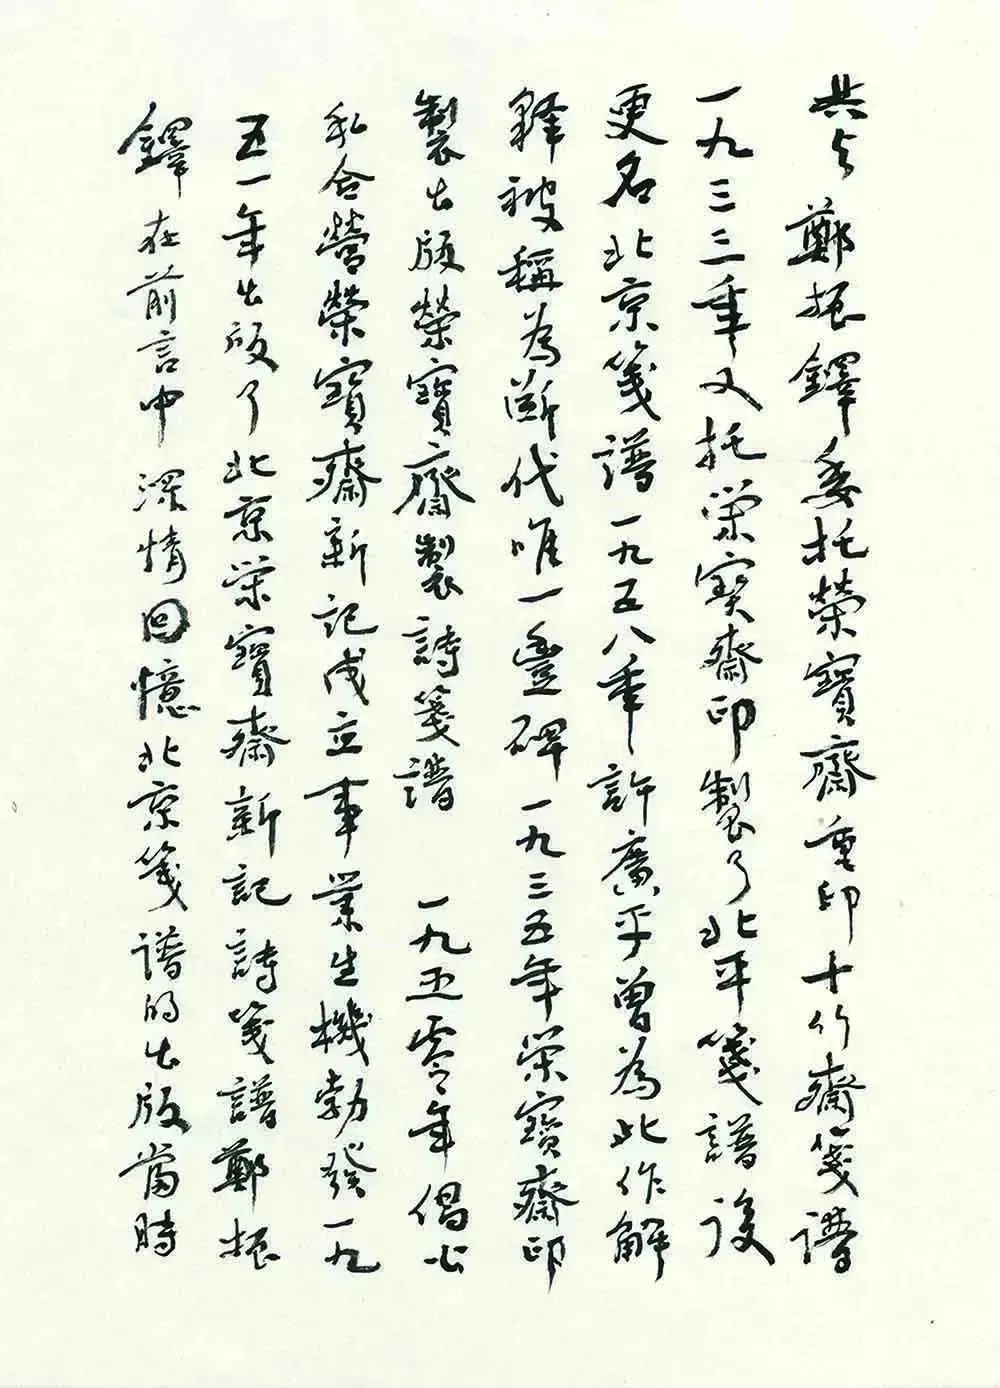 共与鄭振鐸委托榮寶齋重印十竹齋箋譜
一九三三年又托荣寶齋印製了北平箋譜後
更名北京箋譜一九五八年許廣平曾為此作解
釋被稱為断代唯一豐碑一九三五年荣寶齋印
製出版榮寶齋製詩箋譜 一九五零年倡公
私合營榮寶齋新記成立事業生機勃發一九
五一年出版了北京荣寶齋新記詩箋譜鄭振
鐸在前言中深情回憶北京箋譜的出版當時